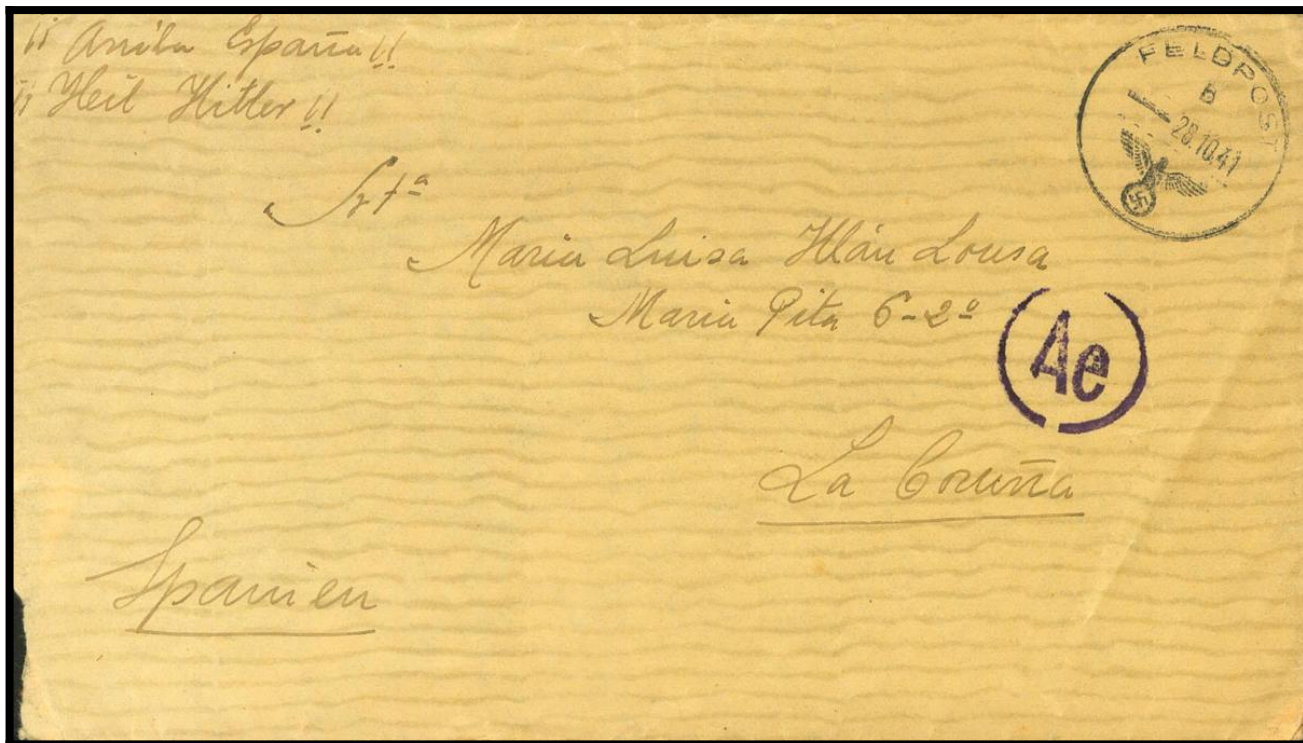 ¡¡ Arriba España !!
¡¡ Heil Hitler !!
FELDPOST
b
28.10.41
Srtª
Maria Luisa Lousa
Maria Pita 6-2º
Ae
La Coruña
Spanien